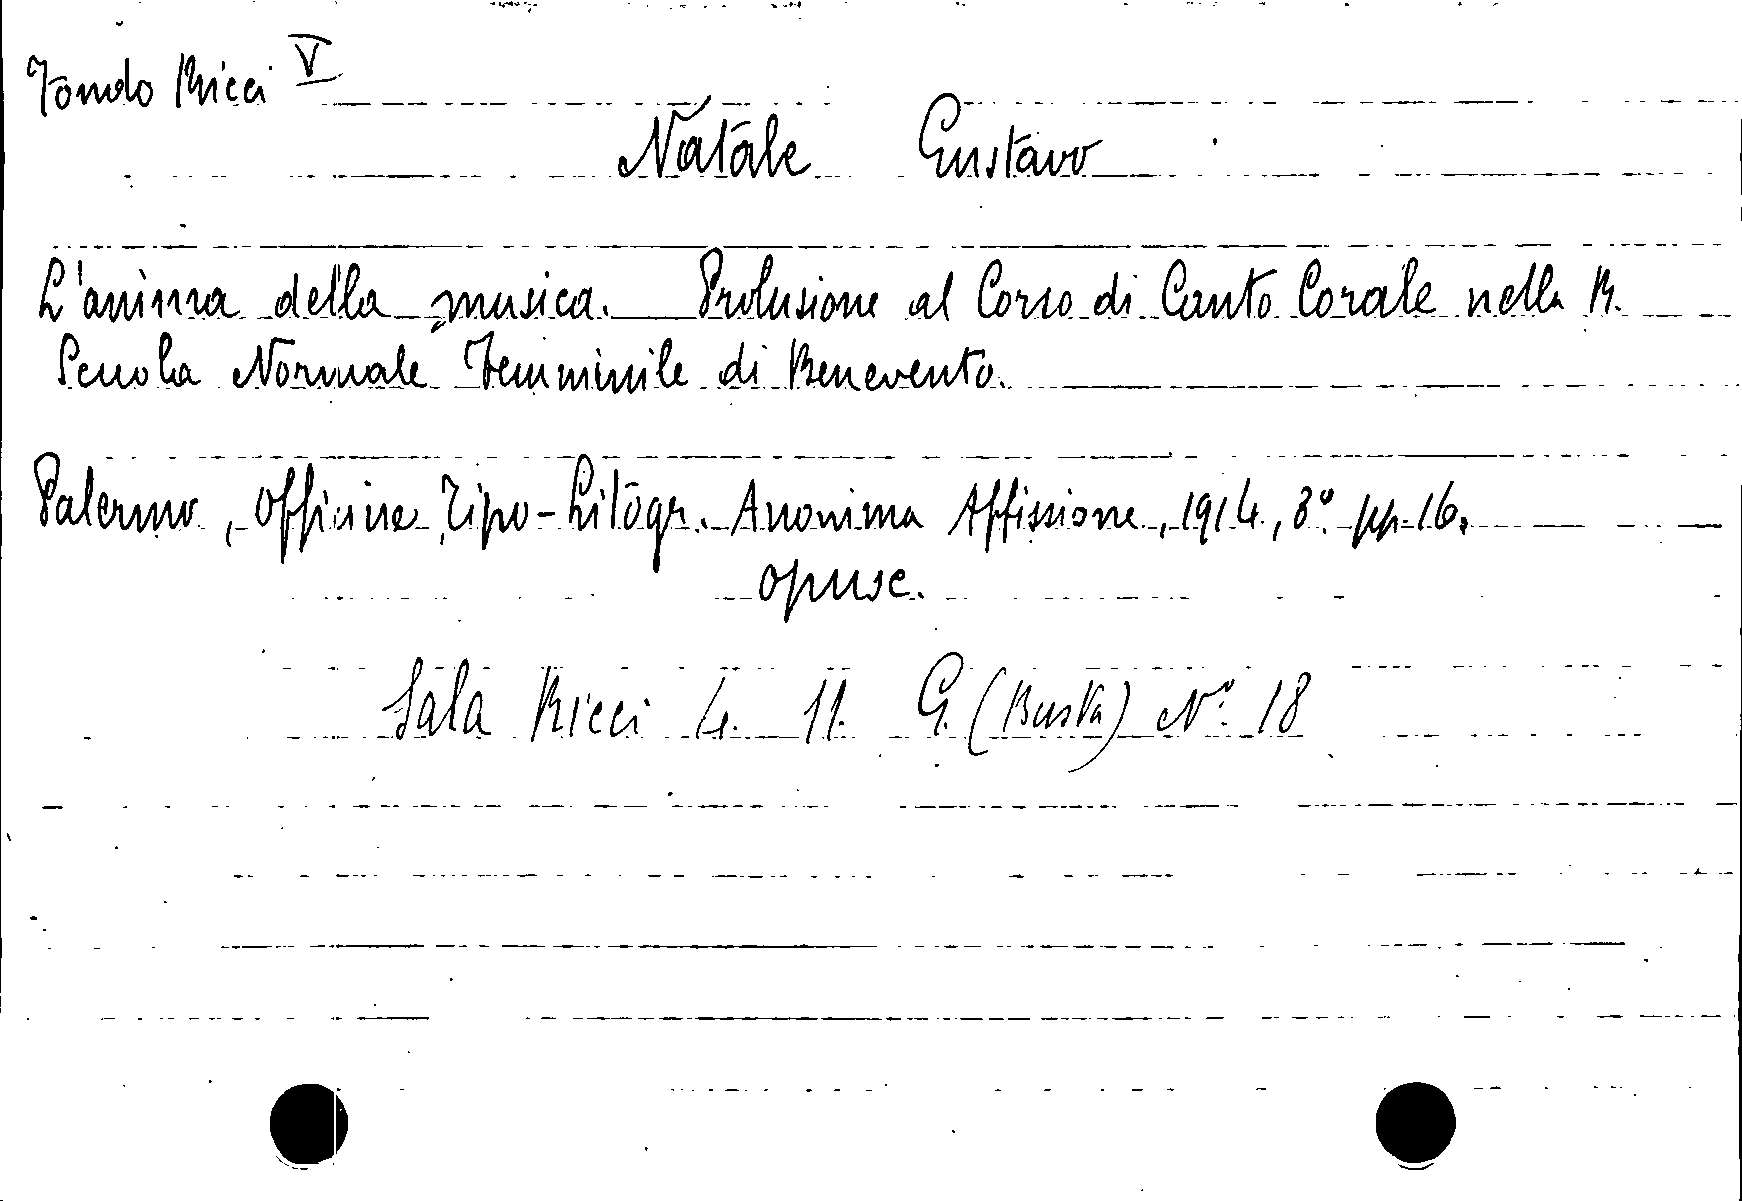 Fondo Ricci V
Natale Gustavo
L'anima della musica. Prolusione al Corso di Canto Corale nella R.
Scuola Normale Femminile di Benevento.
Palermo, Officine Tipo-Litogr. Anonima Affissione, 1914, 8° pp. 16.
opusc.
Sala Ricci 4. 11. G. (Busta) N° 18